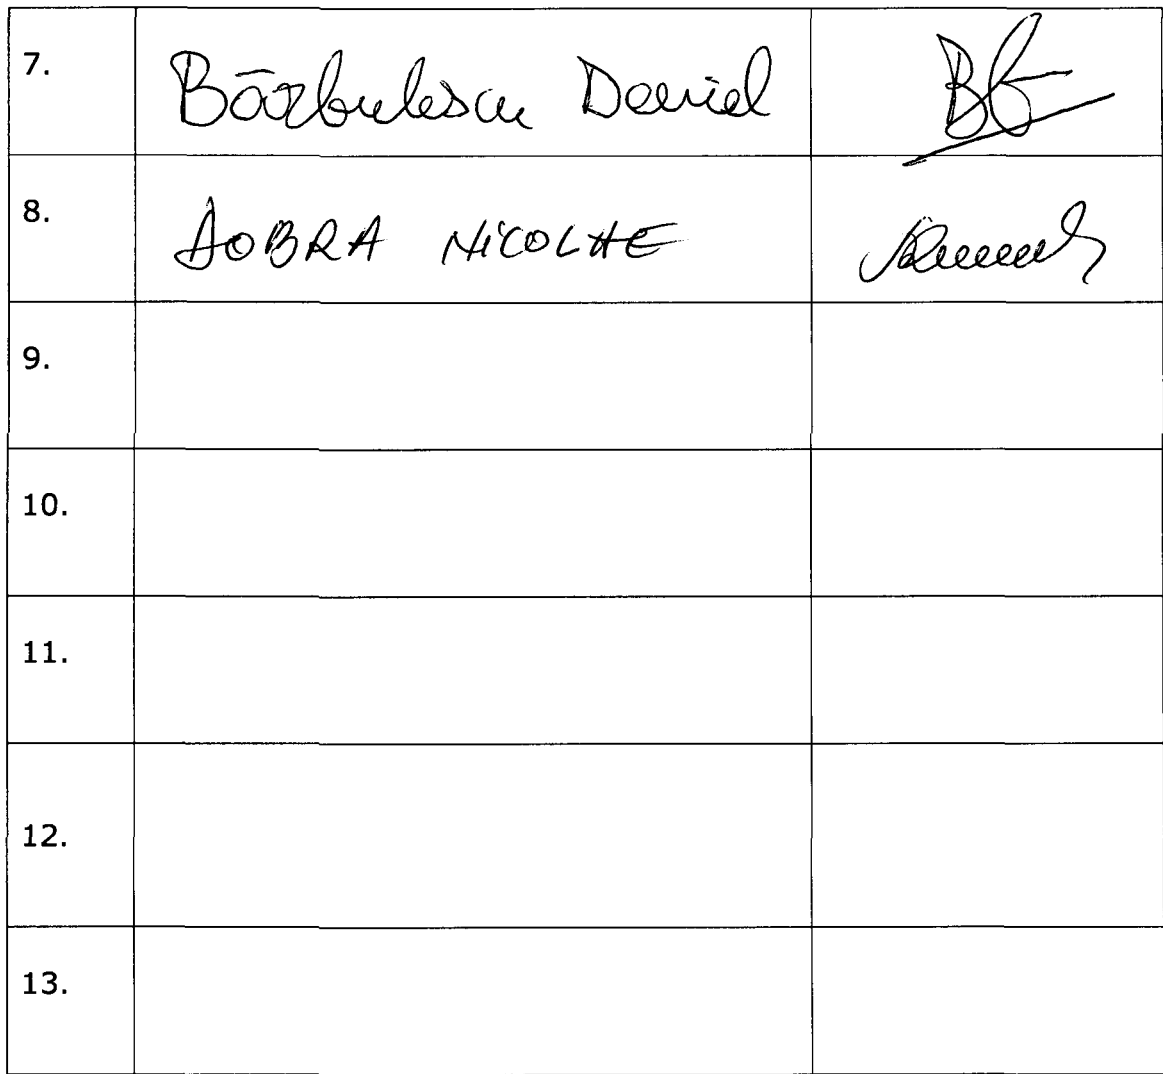 7. Bărbulescu Daniel
8. DOBRA NICOLAE
9.
10.
11.
12.
13.